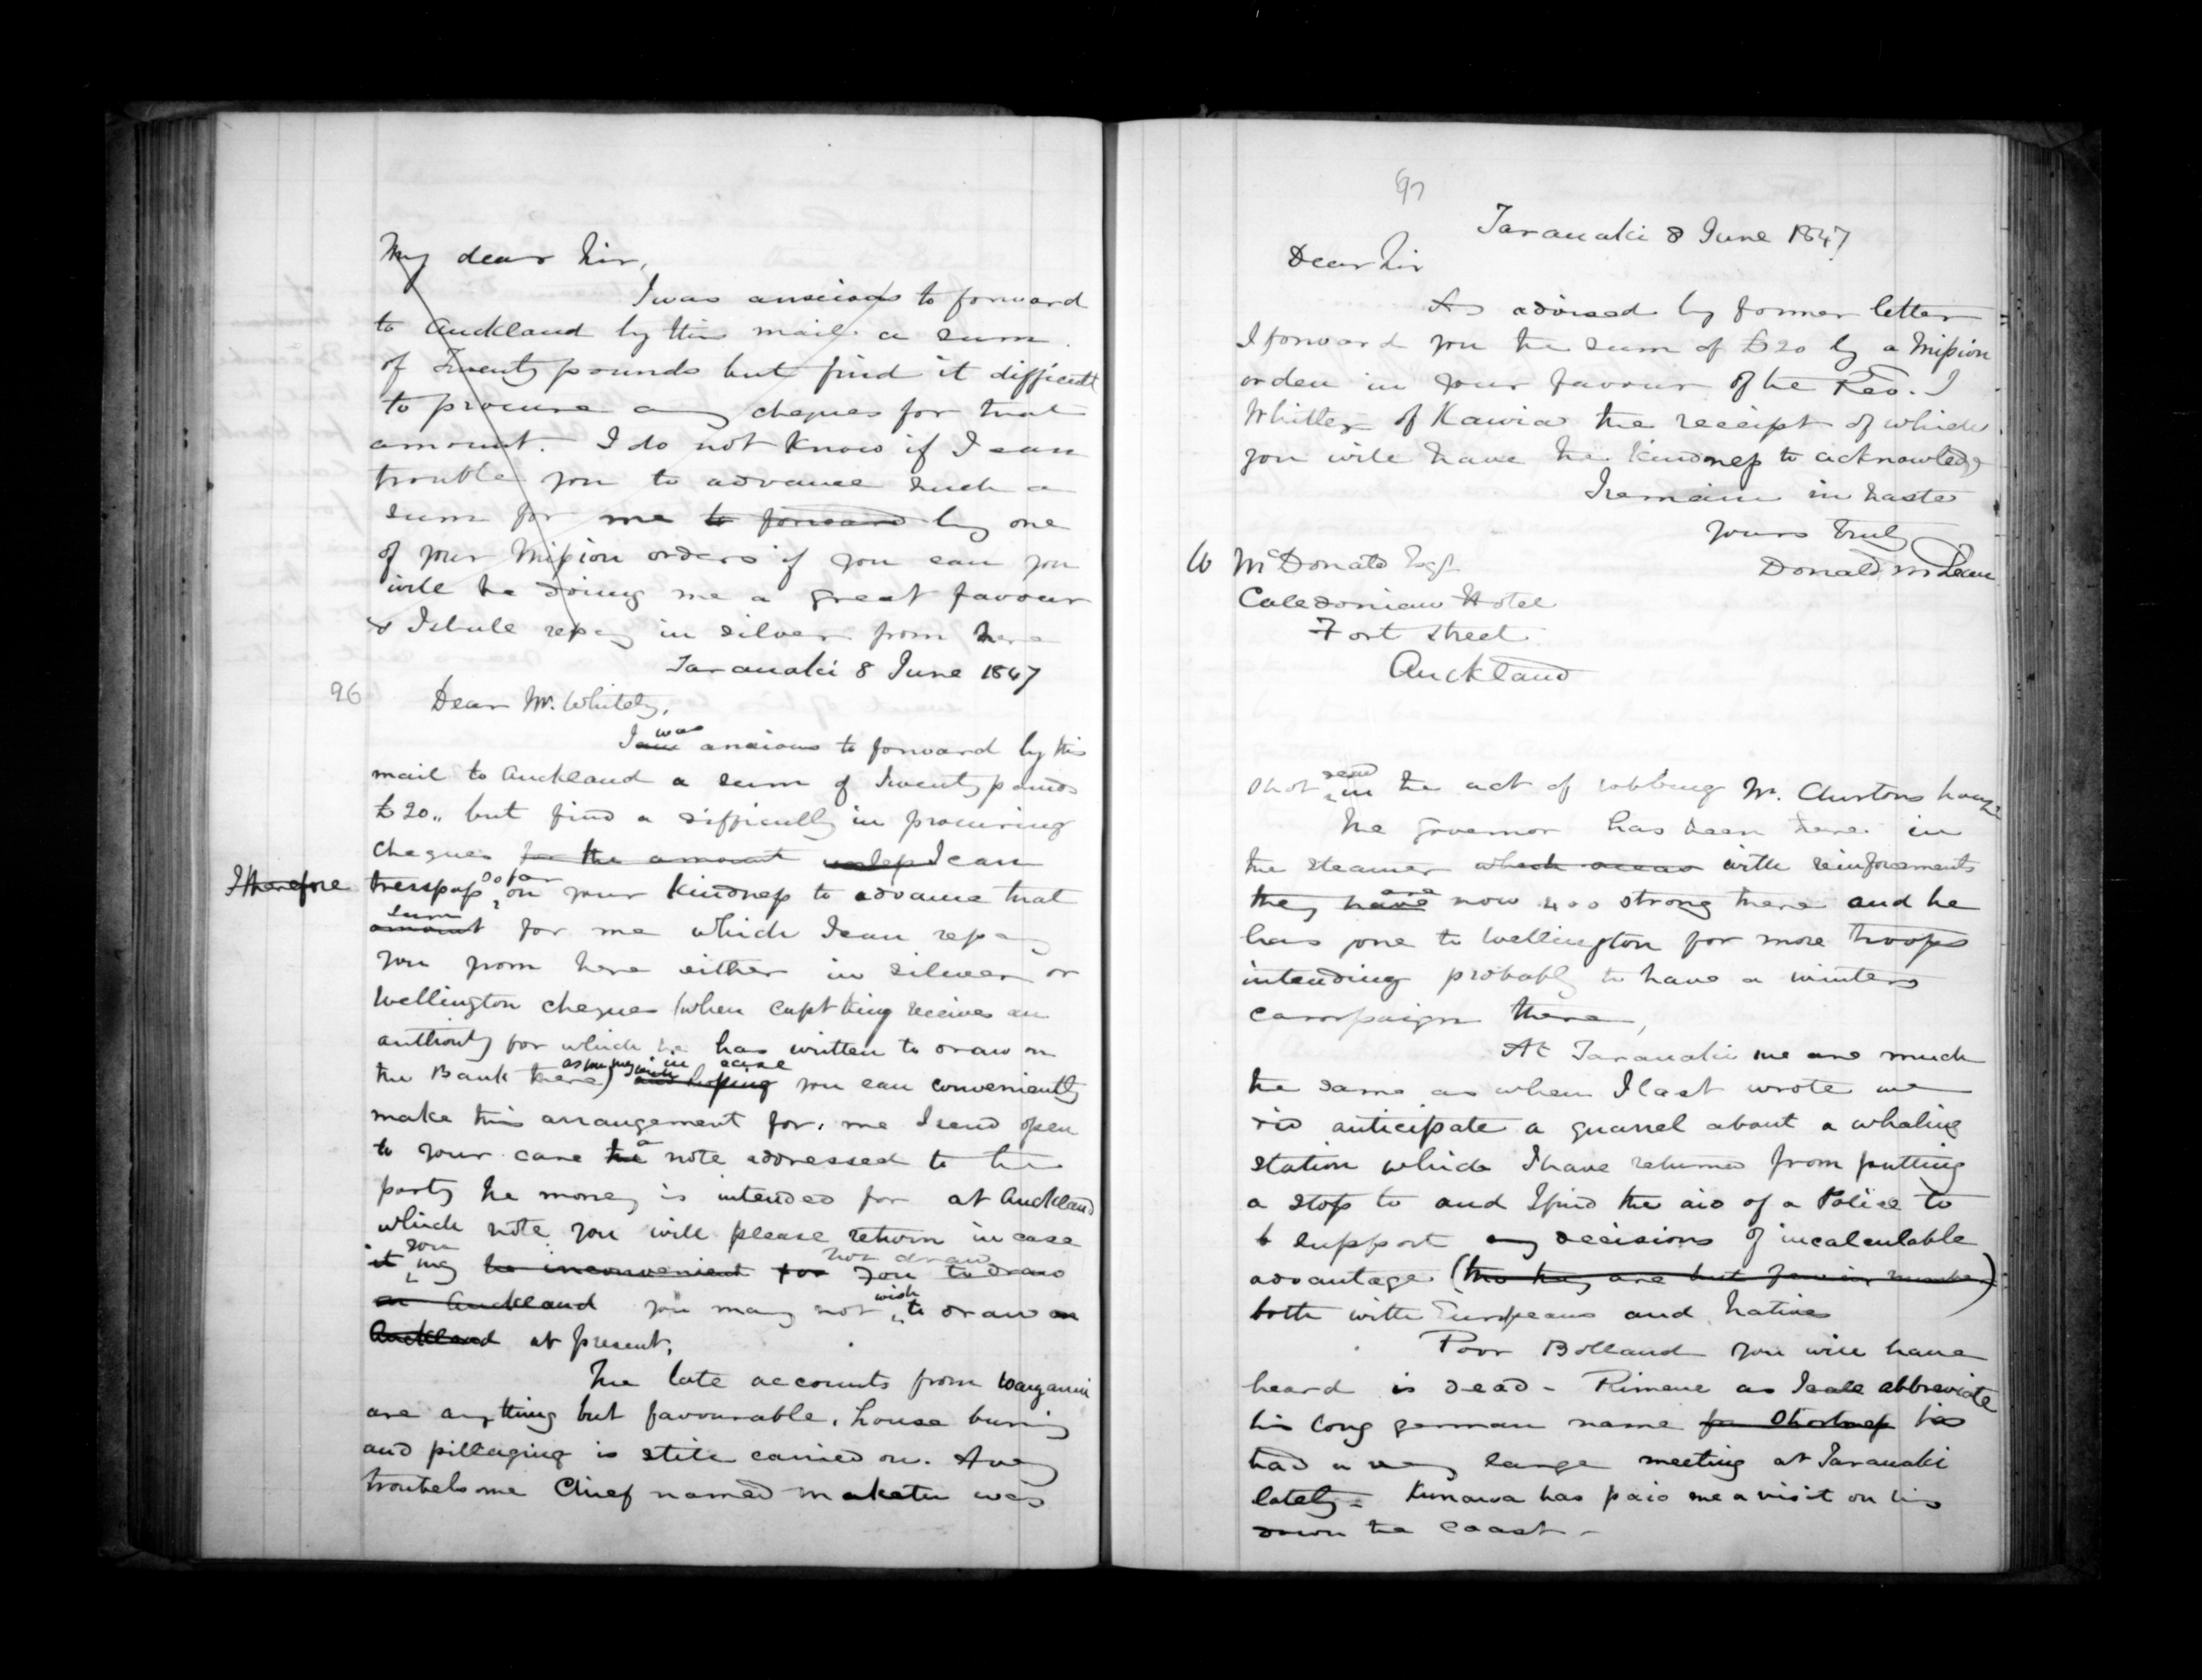 My dear Sir,
I was anxious to forward
to Auckland by this mail a sum
of Twenty pounds but find it difficult
to procure any cheques for that
amount. I do not know if I can
trouble you to advance such a
sum for me to forward by one
of your Mission orders if you can you
will be doing me a great favour
& I shall repay in silver from here
Taranaki 8 June 1847
96
Dear Mr. Whitely,
was
I am anxious to forward by this
mail to Auckland a sum of Twenty pounds
£20,, but find a difficulty in procuring
cheques for the amount unless I can
I therefore tresspass so far on your kindness to advance that
sum
amount for me which I can repay
you from here either in silver or
Wellington cheques (when Capt King receives an
authority for which he has written to draw on
in case
the Bank there) and hoping you can conveniently
make this arrangement for me I send open
a
to your care the note addressed to the
party the money is intended for at Auckland
which note you will please return in case
you not draw
it may be inconvenient for you to draw
wish
on Auckland you may not to draw on
Auckland at present.
The late accounts from Wanganui
are anything but favourable, house burning
and pillaging is still carried on. A very
troubelsome Chief named Maketu was
97
Taranaki 8 June 1847
Dear Sir
As advised by former letter
I forward you the sum of £20 by a Mission
order in your favour of the Rev. I
Whitley of Kawia the receipt of which
you will have the kindness to acknowledge
I remain in haste
Yours truly
Donald McLean
to McDonald Esqr
Caledonian Hotel
Fort Street
Auckland
dead
shot in the act of robbing Mr. Churtons house
The Governor has been there in
the steamer which with reinforcements
are
they have now 400 strong there and he
has gone to Wellington for more troops
intending probably to have a winters
campaign there,
At Taranaki we are much
the same as when I last wrote we
did anticipate a quarrel about a whaling
station which I have returned from putting
a stop to and I find the aid of a Police to
support my decisions of incalculable
advantage (tho they are but few in number)
both with Europeans and Natives
Poor Bolland you will have
heard is dead - Rimene as I call abbreviate
his long german name for shortness has
had a very large meeting at Taranaki
lately - Kunawa has paid me a visit on his
down the coast -